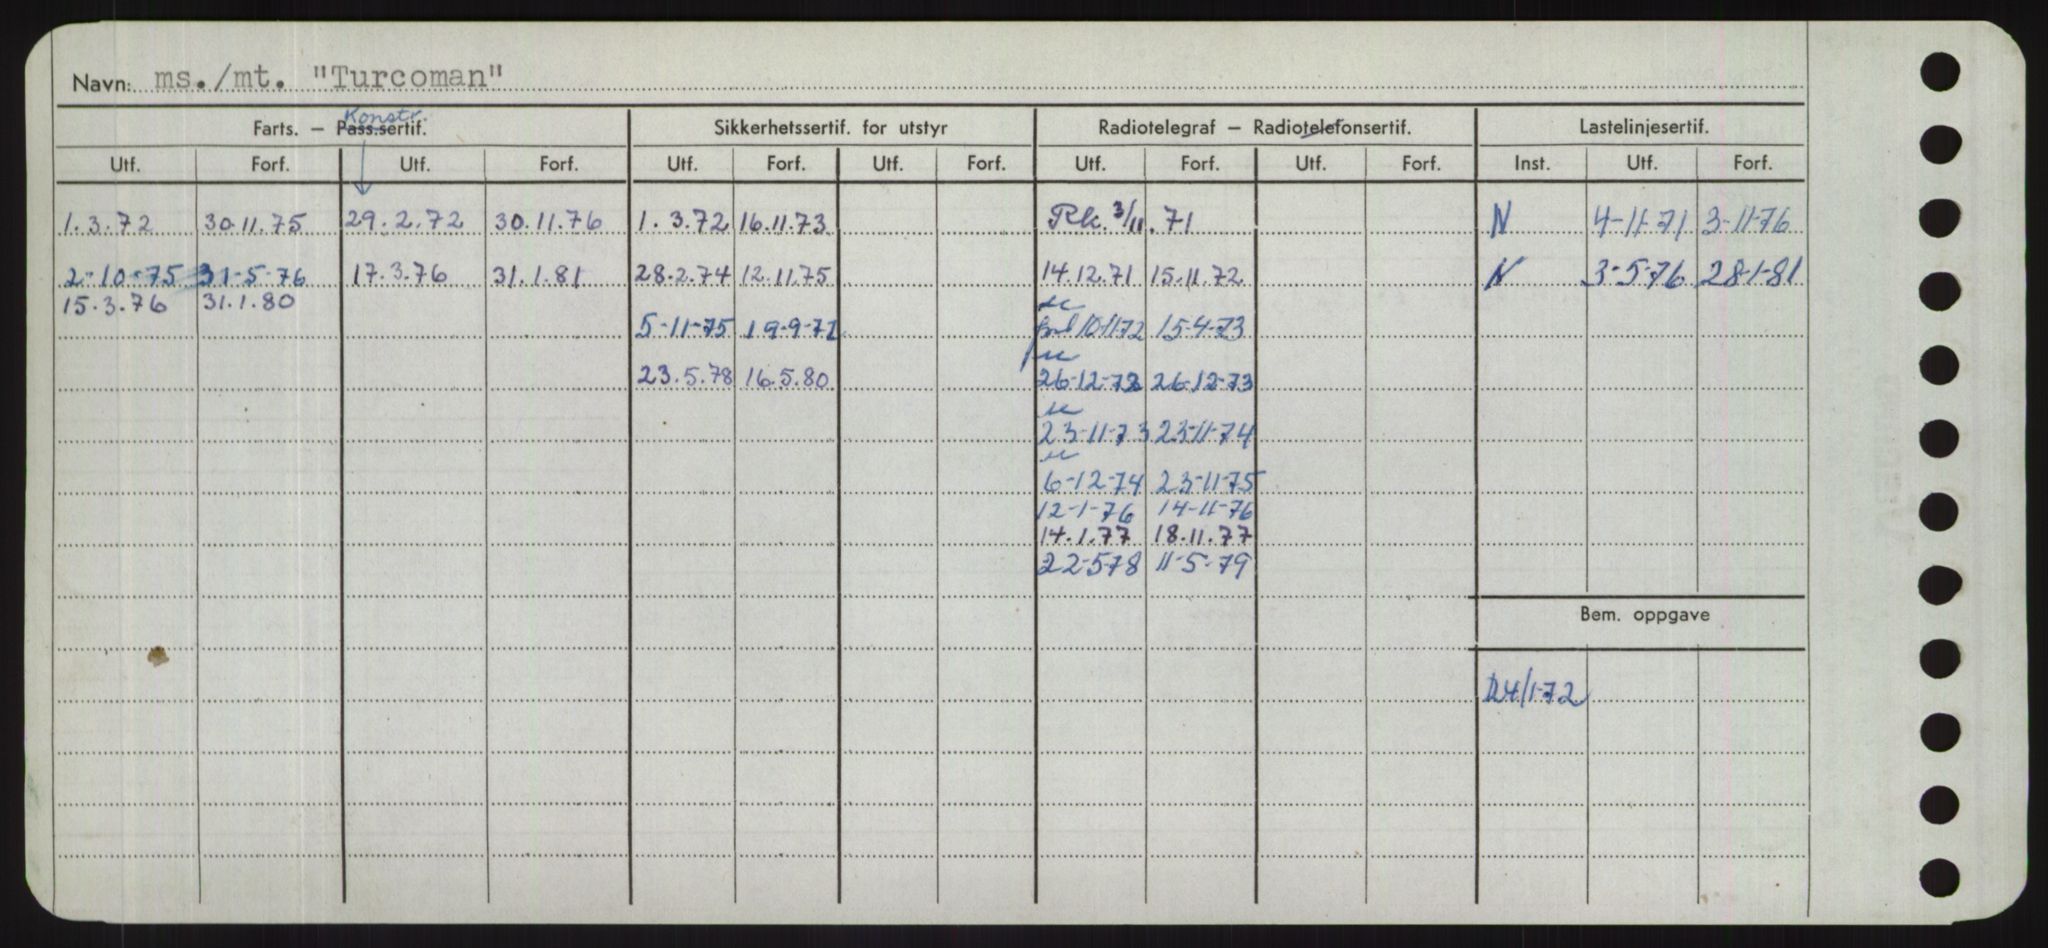 Navn: ms./mt. "Turcoman"
Konstr.
Farts. – Pass.sertif. Sikkerhetssertif. for utstyr Radiotelegraf – Radiotelefonsertif. Lastelinjesertif.
Utf. Forf. Utf. Forf. Utf. Forf. Utf. Forf. Utf. Forf. Utf. Forf. Inst. Utf. Forf.
1.3.72 30.11.75 29.2.72 30.11.76 1.3.72 16.11.73 Rk. 3/11.71 N 4-11-71 3-11-76
2-10-75 31-5-76 17.3.76 31.1.81 28.2.74 12.11.75 14.12.71 15.11.72 N 3-5-76 28-1-81
15.3.76 31.1.80
5-11-75 19-9-77 10-11-72 15-4-73
23.5.78 16.5.80 26-12-72 26-12-73
23-11-73 23-11-74
6-12-74 23-11-75
12-1-76 14-11-76
14.1.77 18.11.77
22-5-78 11-5-79
Bem. oppgave
24/1-72